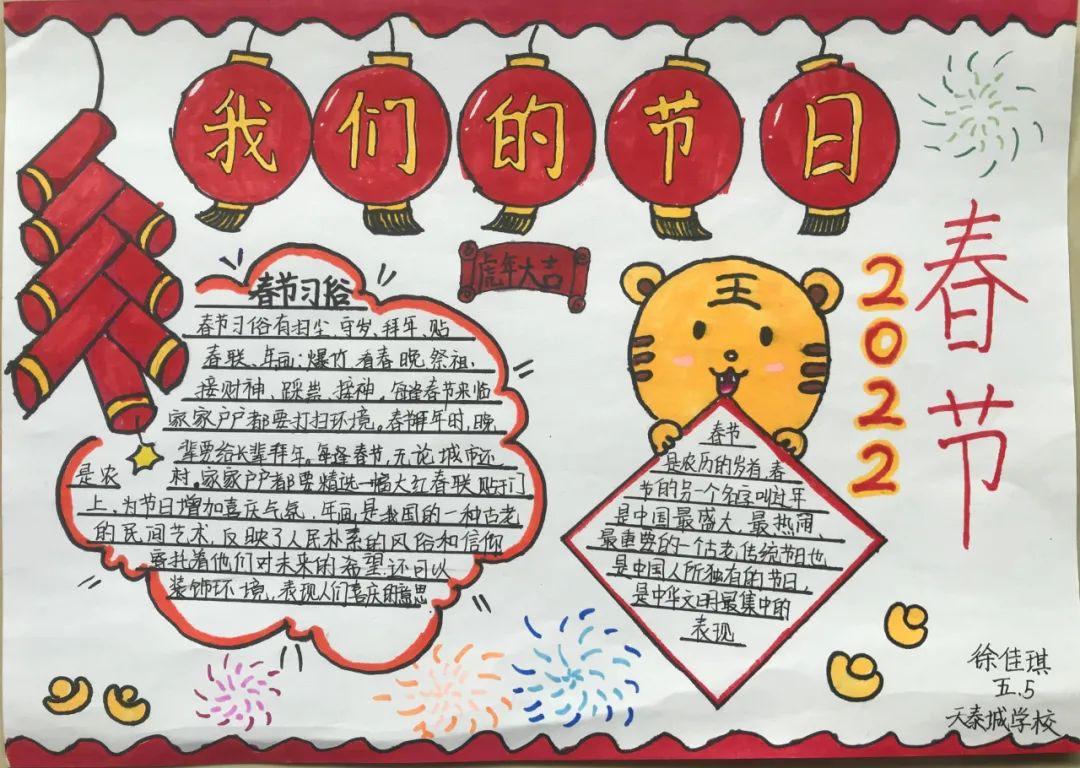 我们的节日
春节
2022
虎年大吉
春节习俗
春节习俗有扫尘、守岁、拜年、贴
春联、年画;爆竹、看春晚、祭祖,
接财神、踩祟、接神。每逢春节来临
家家户户都要打扫环境。春拜年时,晚
辈要给长辈拜年。每逢春节,无论城市还
是农村。家家户户都要精选一幅大红春联贴于门
上,为节日增加喜庆气氛。年画是我国的一种古老
的民间艺术,反映了人民朴素的风俗和信仰
寄托着他们对未来的希望.还可以
装饰环境,表现人们喜庆的意思
王
春节
是农历的岁首,春
节的另一个名字叫过年
是中国最盛大、最热闹、
最重要的一个古老传统节日,也
是中国人所独有的节日,
是中华文明最集中的
表现
徐佳琪
五.5
天泰城学校